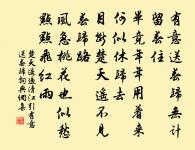 有意送春歸無計
留春住
畢竟年年用着來
何似休歸去
目斷楚天遙不見
春歸路
風急桃花也似愁
點點飛紅雨
楚天遙過清江引有意
送春歸詞典網集